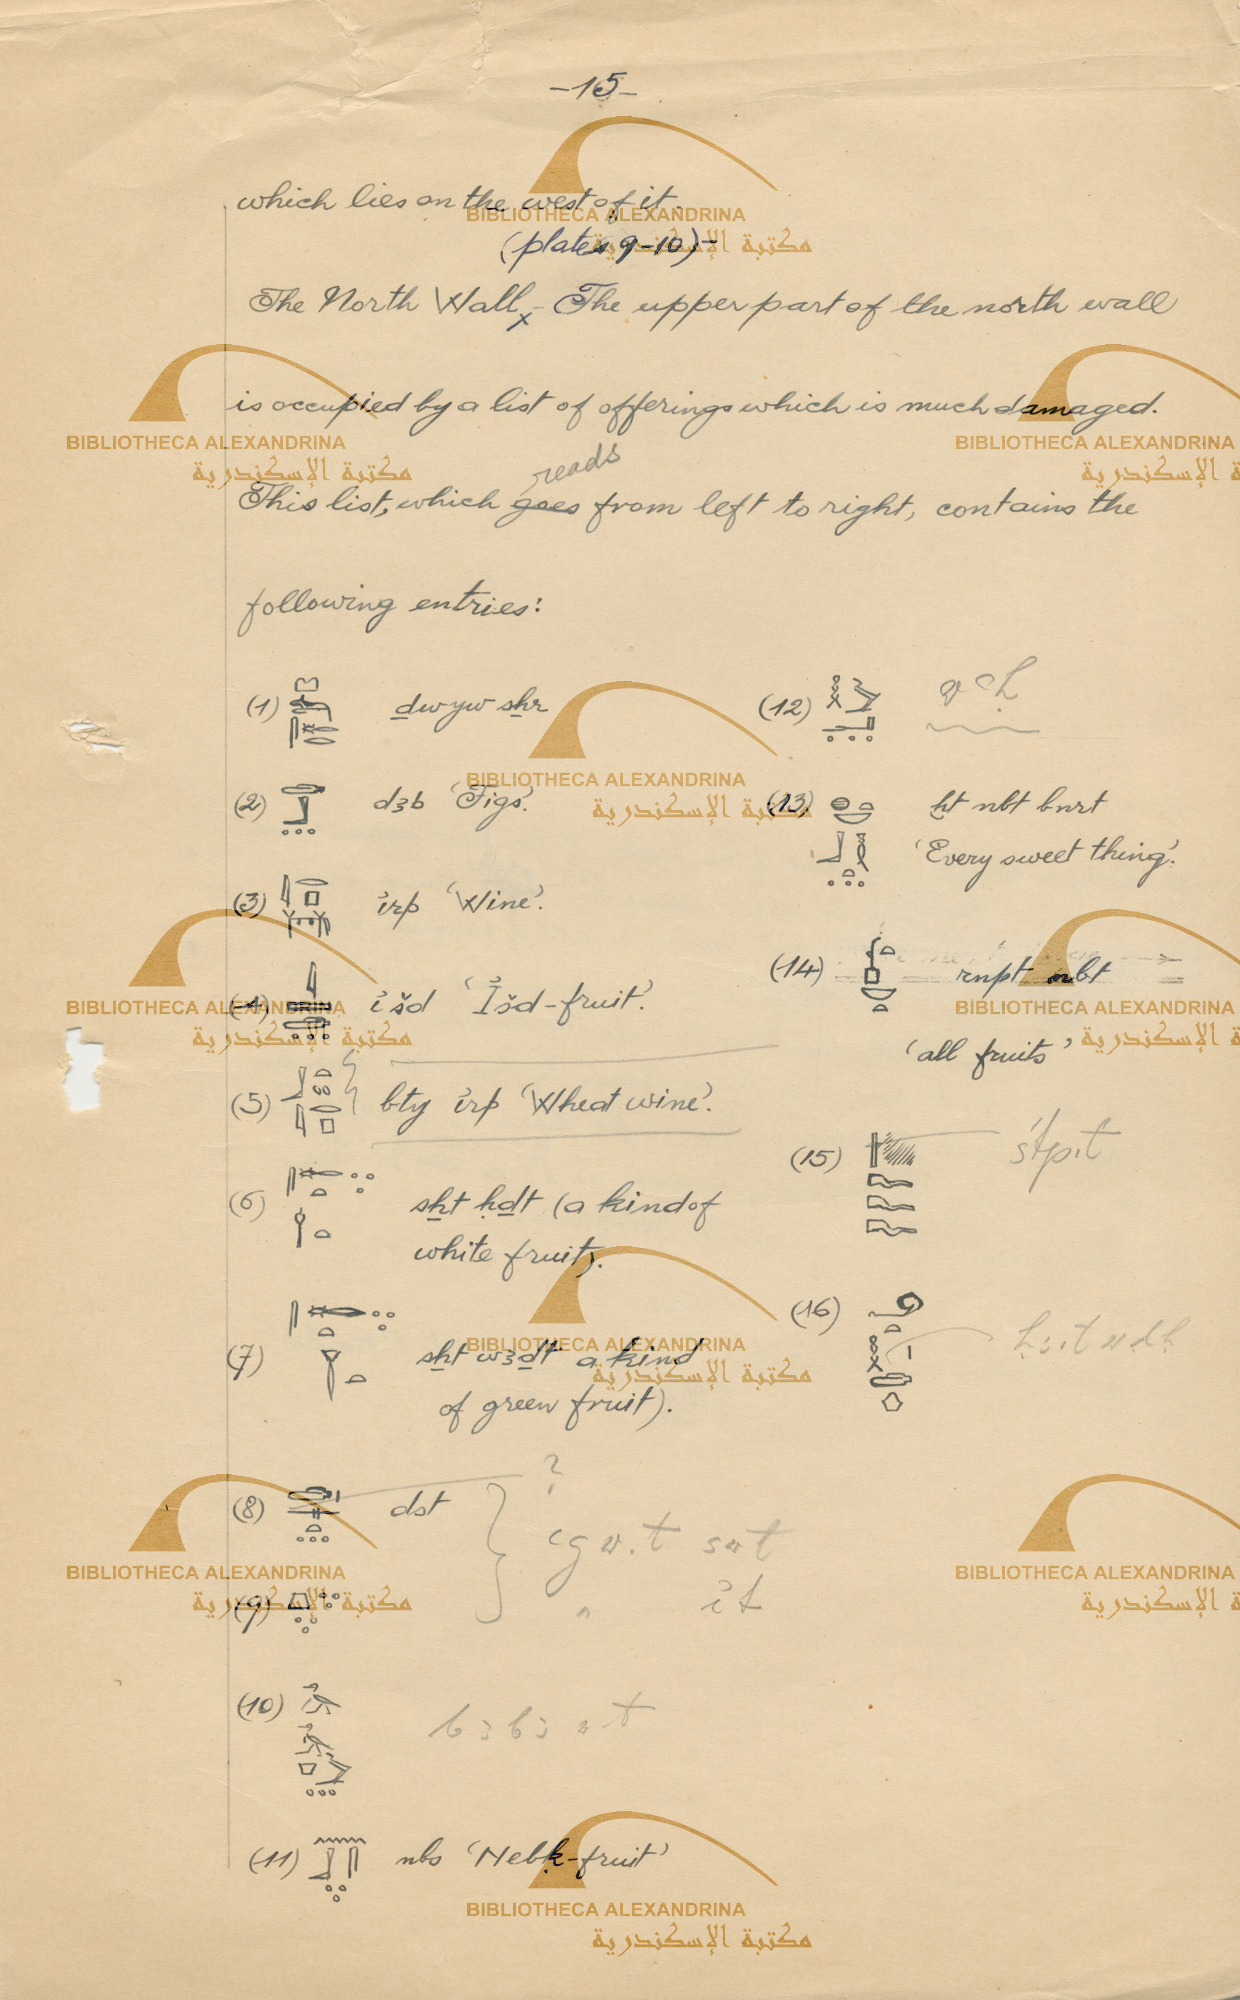 -15-
which lies on the west of it.
(plates 9-10):-
The North Wall x - The upper part of the north wall
is occupied by a list of offerings which is much damaged.
reads
This list, which goes from left to right, contains the
following entries:
(1) ḏwyw sḫr
(2) dꜣb 'Figs'.
(3) ỉrp 'Wine'.
(4) ỉšd 'Ỉšd-fruit'.
(5) bty ỉrp 'Wheat wine'.
(6) sḫt ḥḏt (a kind of
white fruit).
(7) sḫt wꜣḏt a kind
of green fruit).
?
(8) dst
ꜥgw.t swt
" ỉt
(9)
(10) bꜣbꜣwt
(11) nbs 'Nebḳ-fruit'
(12) wꜥḥ
(13) ḫt nbt bnrt
'Every sweet thing'.
(14) rnpt nbt
'all fruits'
(15) śtp.t
(16) ḥꜣ.t wdḥ
BIBLIOTHECA ALEXANDRINA
مكتبة الإسكندرية